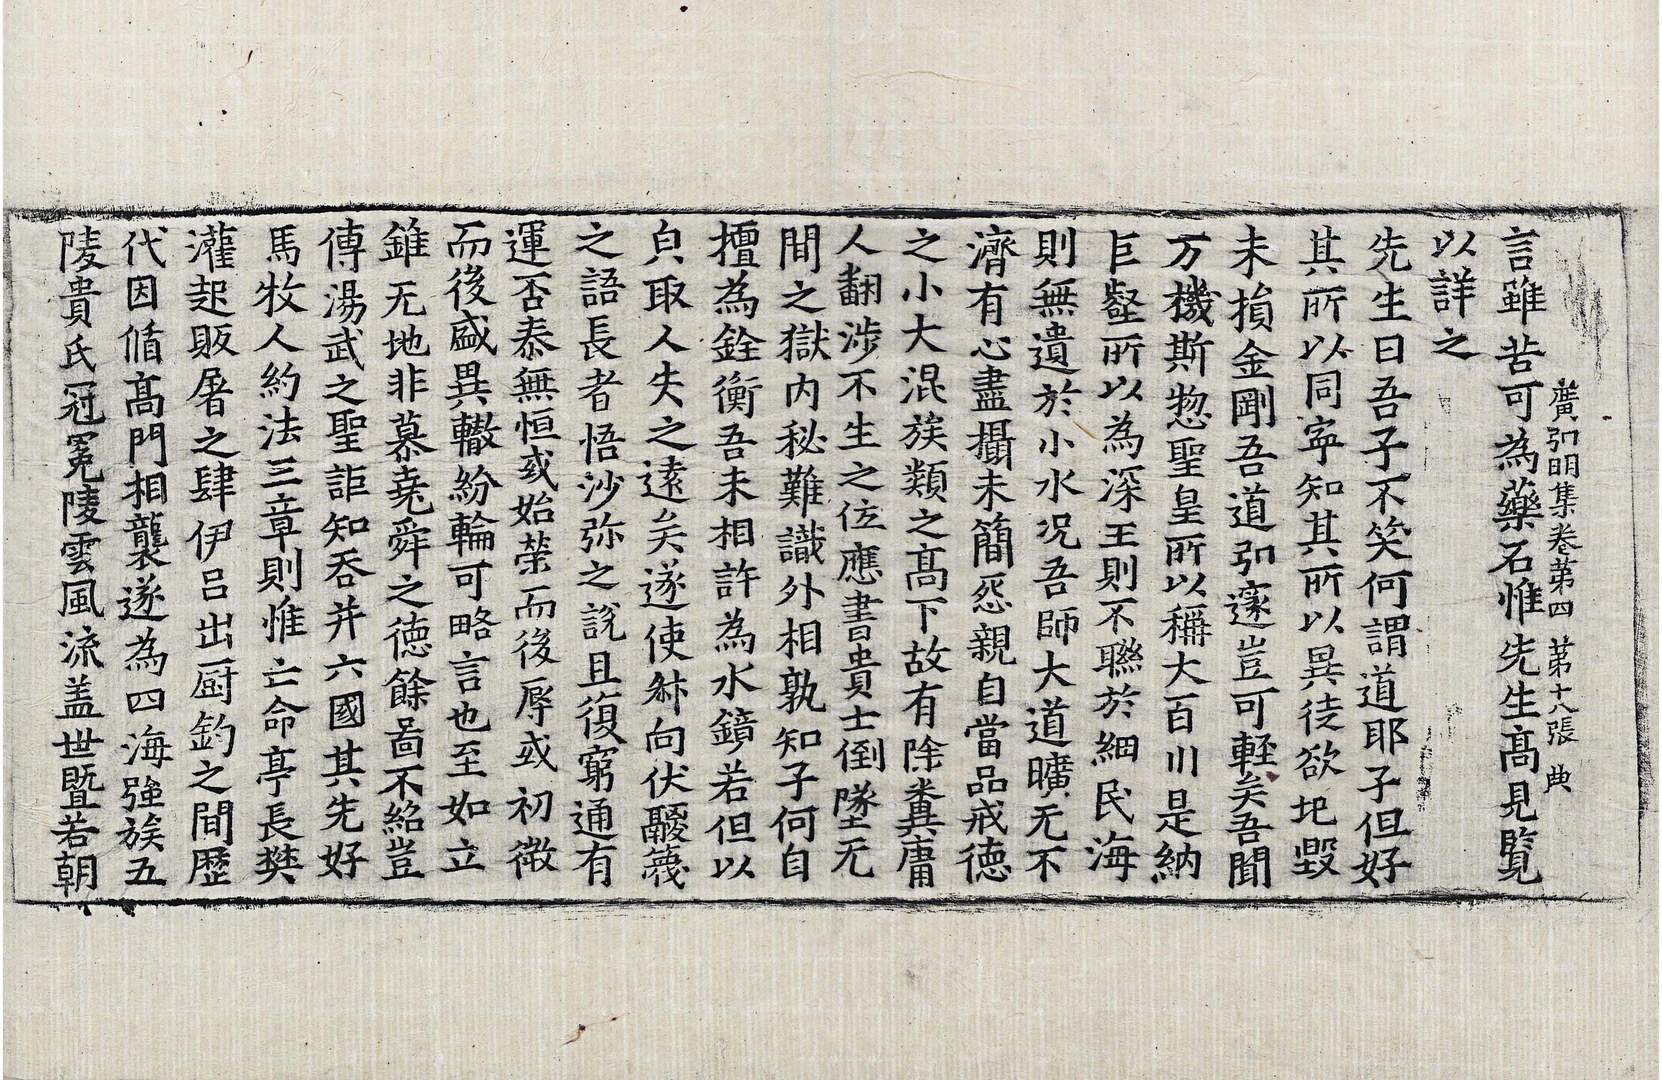 廣弘明集卷第四 第十八張 典
言雖苦可為藥石惟先生高見覽
以詳之
先生曰吾子不笑何謂道耶子但好
其所以同寧知其所以異徒欲圯毀
未損金剛吾道弘邃豈可輕矣吾聞
万機斯惣聖皇所以稱大百川是納
巨壑所以為深王則不聯於細民海
則無遺於小水况吾師大道曠无不
濟有心盡攝未簡怨親自當品戒德
之小大混族類之高下故有除糞庸
人翻涉不生之位應書貴士倒墜无
間之獄内秘難識外相孰知子何自
擅為銓衡吾未相許為水鏡若但以
皃取人失之遠矣遂使舛向伏鬷篾
之語長者悟沙弥之說且復窮通有
運否泰無恒或始榮而後辱或初微
而後盛異轍紛輪可略言也至如立
錐无地非慕堯舜之德餘畐不紹豈
傳湯武之聖詎知吞并六國其先好
馬牧人約法三章則惟亡命亭長樊
灌起販屠之肆伊呂出厨釣之間歷
代因循高門相襲遂為四海強族五
陵貴氏冠冕陵雲風流盖世暨若朝